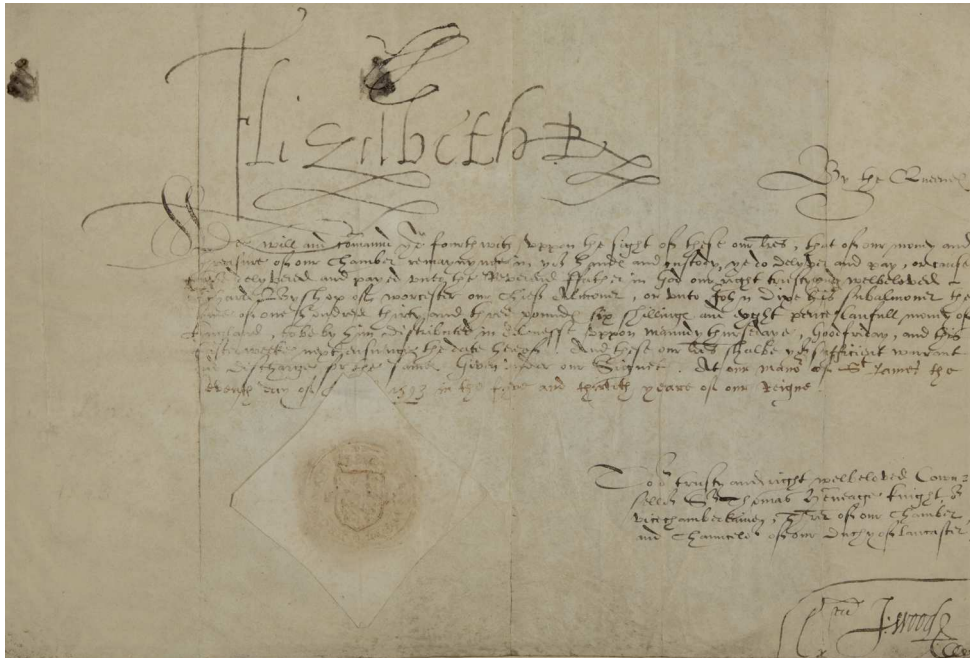 Elizabeth R
By the Queene
Wee will and comaund yow fourthwith uppon the sight of these our lres, that of our money and
treasure of our Chamber remayninge in yor hands and custody, ye do delyver and pay, or cause
to be delyvered and payed unto the Reverend Father in God our right trustie and welbeloved
Byshop of worcester our Chief Almoner, or unto John Dixe his subalmoner the
of one hundred thirty and three pounds six shillings and eyght pence lawfull money of
England, to be by him distributed in almesse uppon maundy thursdaye, Goodfriday, and this
Easter next ensuinge the date hereof. And these our lres shalbe yor sufficient warrant
and discharge for the same. Given under our Signet. At our manor of St James the
day of 1593 in the five and thirtith yeare of our Reigne.
To or trusty and right welbeloved Coun=
sellor Sr Thomas Heneage knight, or
vicechamberlaine, Threr of our Chamber
and Chauncelor of our Duchy of Lancaster
J. wood